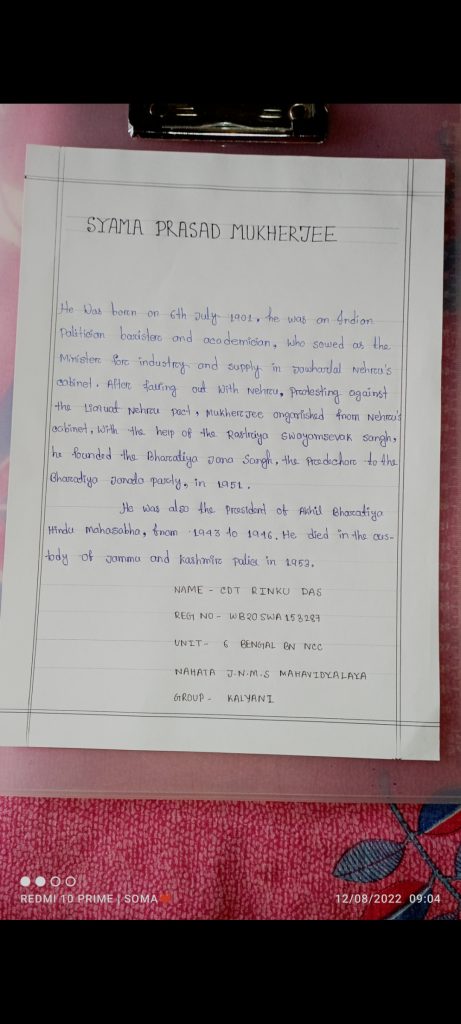 SYAMA PRASAD MUKHERJEE
He was born on 6th July 1901. he was an Indian
Politician baristere and academician, who sowed as the
Ministere fore industry and supply in Jowhardal Nehreu's
cabinet. After falling out with Nehreu, Protesting against
the Liaquat Nehreu pact, Mukherejee ongarished from Nehreu's
cabinet, With the help of the Rastriya Swayomsevak sangh,
he founded the Bharatiya Jana Sangh, the Predichore to the
Bharatiya Janata parety, in 1951.
He was also the president of Akhil Bharatiya
Hindu Mahasabha, from 1943 to 1946. He died in the cus-
tody of Jammu and kashmire police in 1953.
NAME - CDT RINKU DAS
REGI NO - WB20SWA153287
UNIT - 6 BENGAL BN NCC
NAHATA J.N.M.S MAHAVIDYALAYA
GROUP - KALYANI
REDMI 10 PRIME | SOMA
12/08/2022 09:04